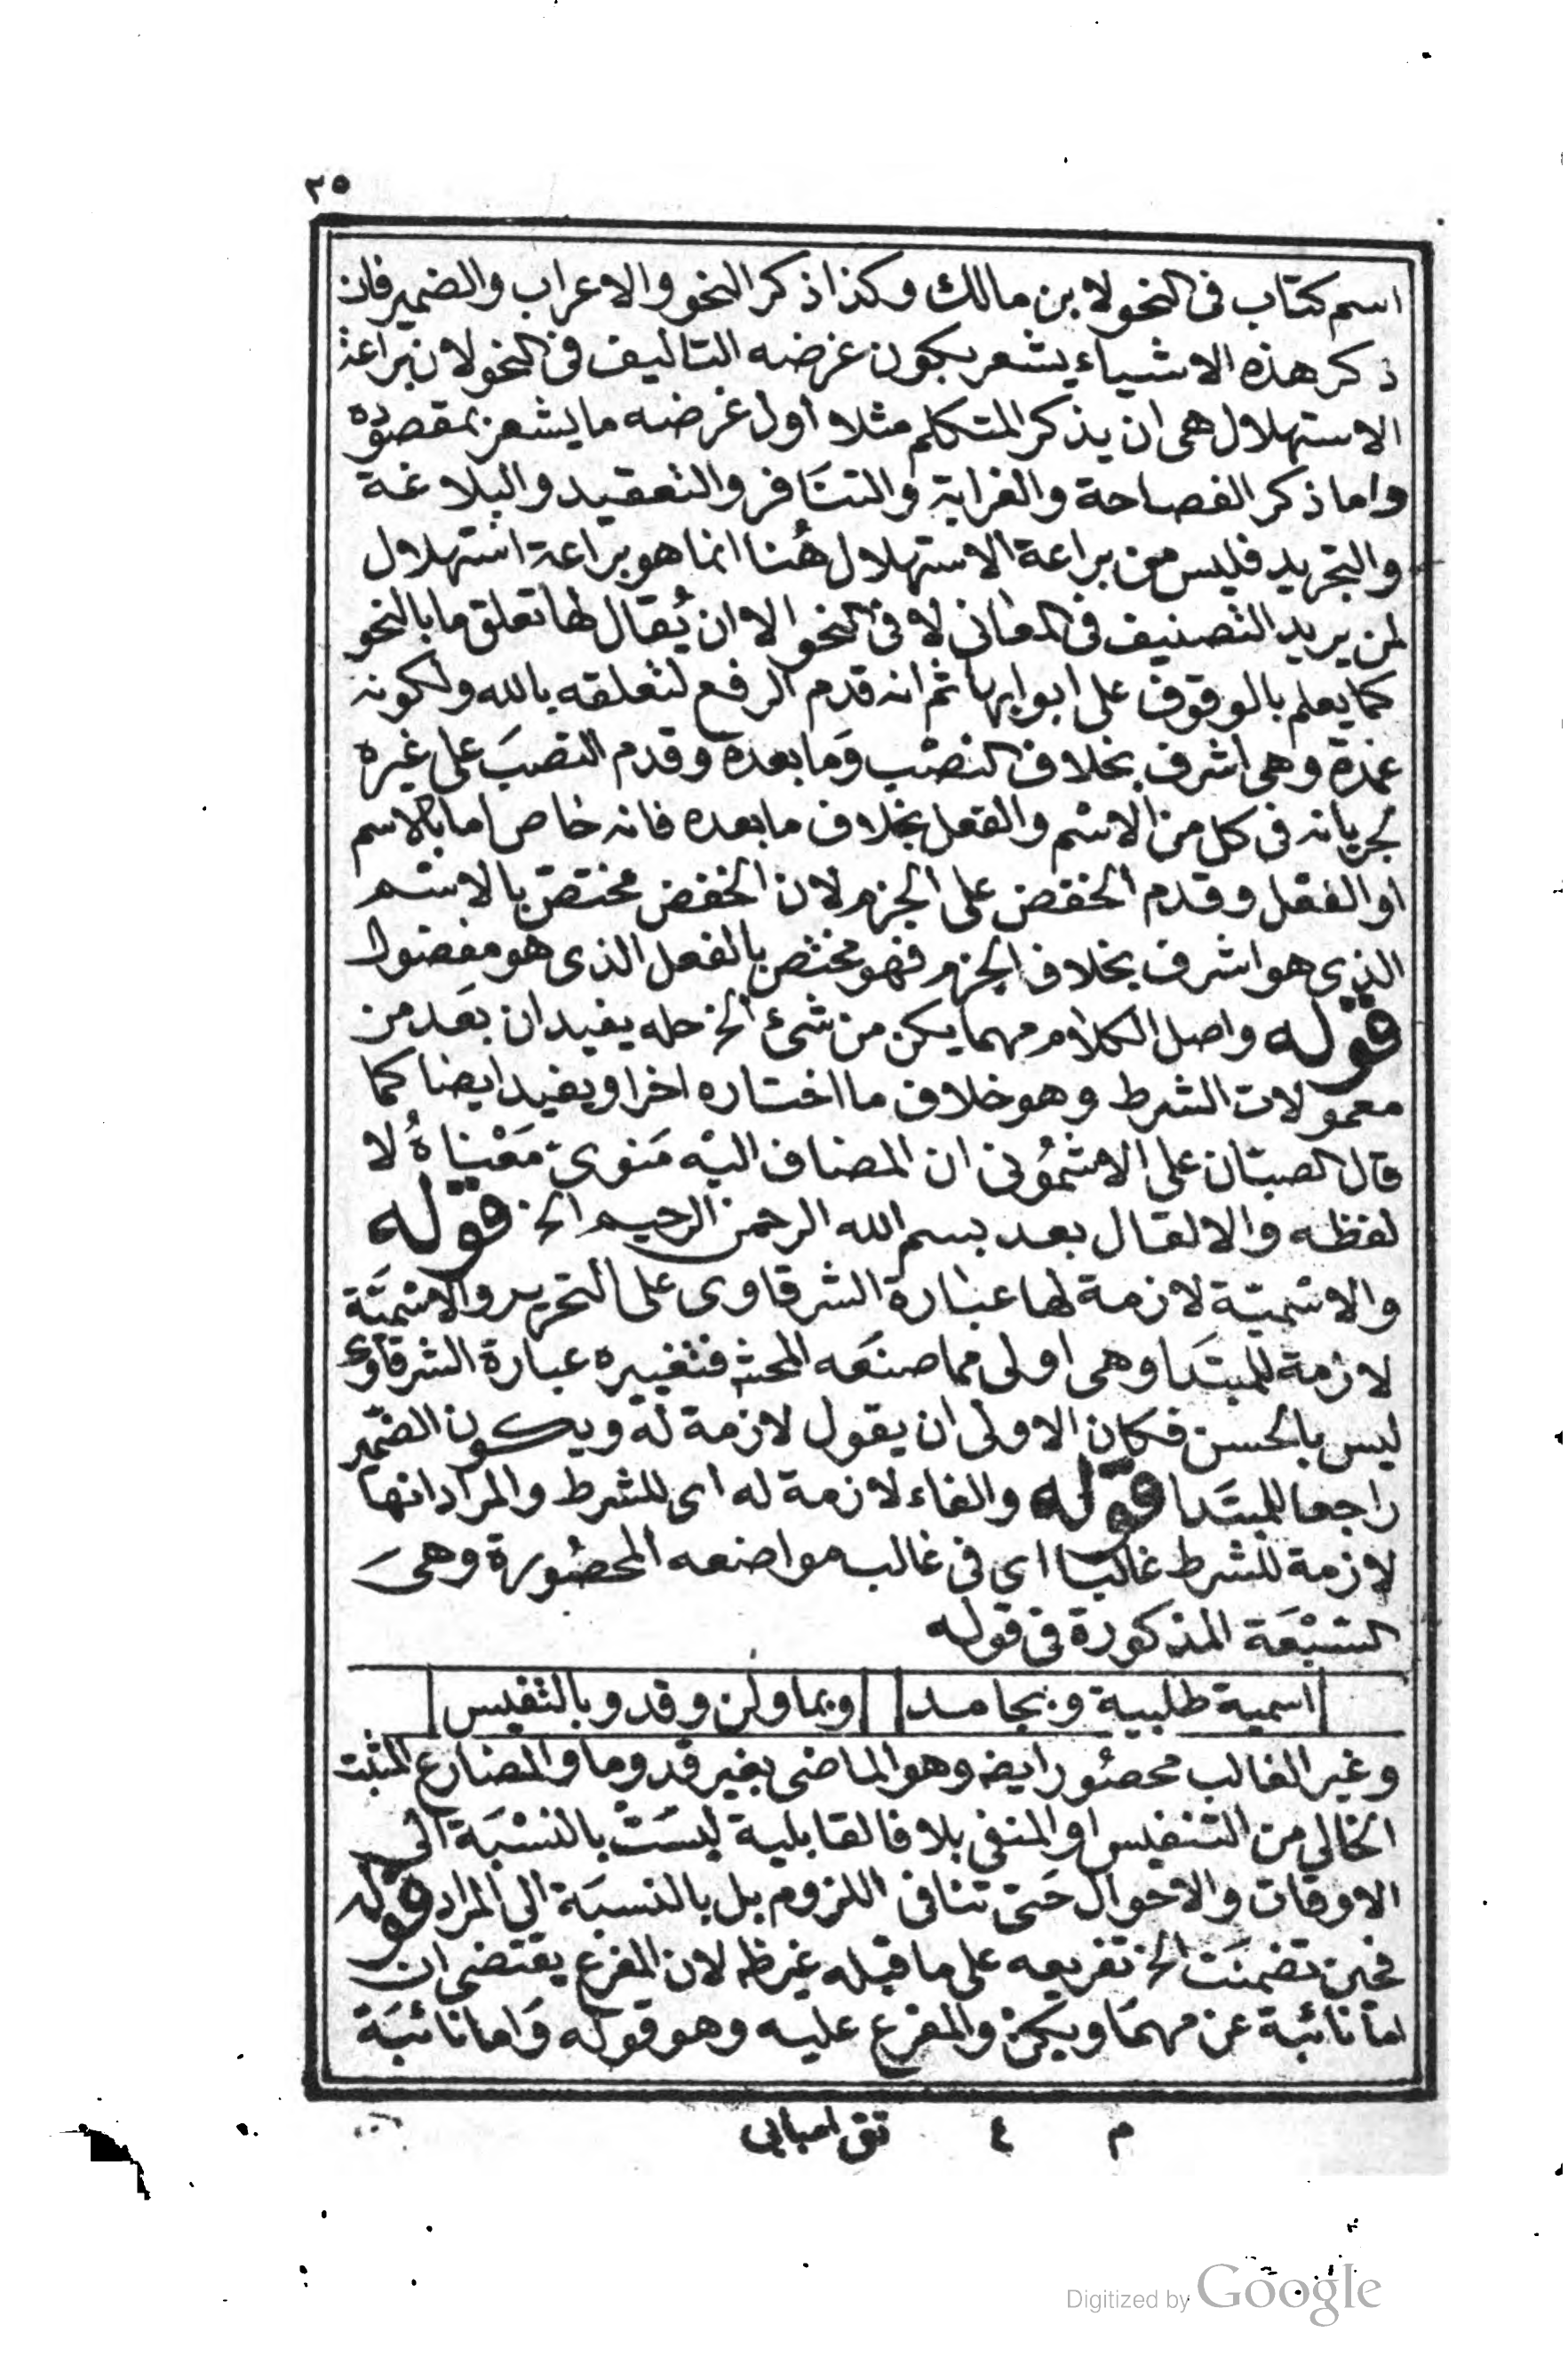 ٢٥
اسم كتاب فى النحو لابن مالك وكذا ذكر النحو والاعراب والضمير فان
ذكر هذه الاشياء يشعر بكون غرضه التاليف فى النحو لان براعة
الاستهلال هى ان يذكر المتكلم مثلا اول غرضه ما يشعر بمقصوده
واما ذكر الفصاحة والغرابة والتنافر والتعقيد والبلاغة
والتجريد فليس من براعة الاستهلال هُنا انما هو براعة استهلال
لمن يريد التصنيف فى المعانى لا فى النحو الا ان يُقال لها تعلق ما بالنحو
كما يعلم بالوقوف على ابوابها ثم انه قدم الرفع لتعلقه بالله ولكونه
عمدة وهى اشرف بخلاف النصب وَما بعده وقدم النصبَ على غيره
لجريانه فى كل من الاسم والفعل بخلاف ما بعده فانه خاص اما بالاسم
او الفعل وقدم الخفض على الجزم لان الخفض مختصّ بالاسم
الذى هو اشرف بخلاف الجزم فهو مختص بالفعل الذى هو مفضول
قوله واصل الكلام مهما يكن من شئ الخ حله يفيد ان بعَد من
معمولات الشرط وهو خلاف ما اختاره اخرا ويفيد ايضا كما
قال الصبان على الاشمُونى ان المضاف اليْه مَنوى مَعْناهُ لا
لفظه والا لقال بعد بسم الله الرحمن الرحيم الخ قوله
والاسميّة لازمة لها عبارة الشرقاوى على التحرير والاسميَّة
لازمة للمبتدَا وهى اولى مما صنعَه المحشى فتغييره عبارة الشرقاوى
ليس بالحسن فكان الاولى ان يقول لازمة له ويكون الضمير
راجعا للمبتدَا قوله والفاء لازمة له اى للشرط والمراد انها
لازمة للشرط غالبا اى فى غالب مواضعه المحصُورة وهىَ
السّبْعَة المذكورة فى قوله
اسمية طلبية وبجامد وبما ولن وقد وبالتنفيس
وغير الغالب محصُور ايضه وهو الماضى بغير قد وما والمضارع المثبت
الخالى من التنفيس او المنفى بلا فالقابلية ليسَتْ بالنسْبَة الى
الاوقات والاحوال حَتى تنافى اللزوم بل بالنسبَة الى المراد قوله
فحين تضمنَت الخ تفريعه على ما قبله غير ظ لان المفرع يقتضى ان
امّا نائبة عن مهمَا ويكن والمفرع عليه وهو قوله وَاما نائبَة
م ٤ تق امبابى
Digitized by Google